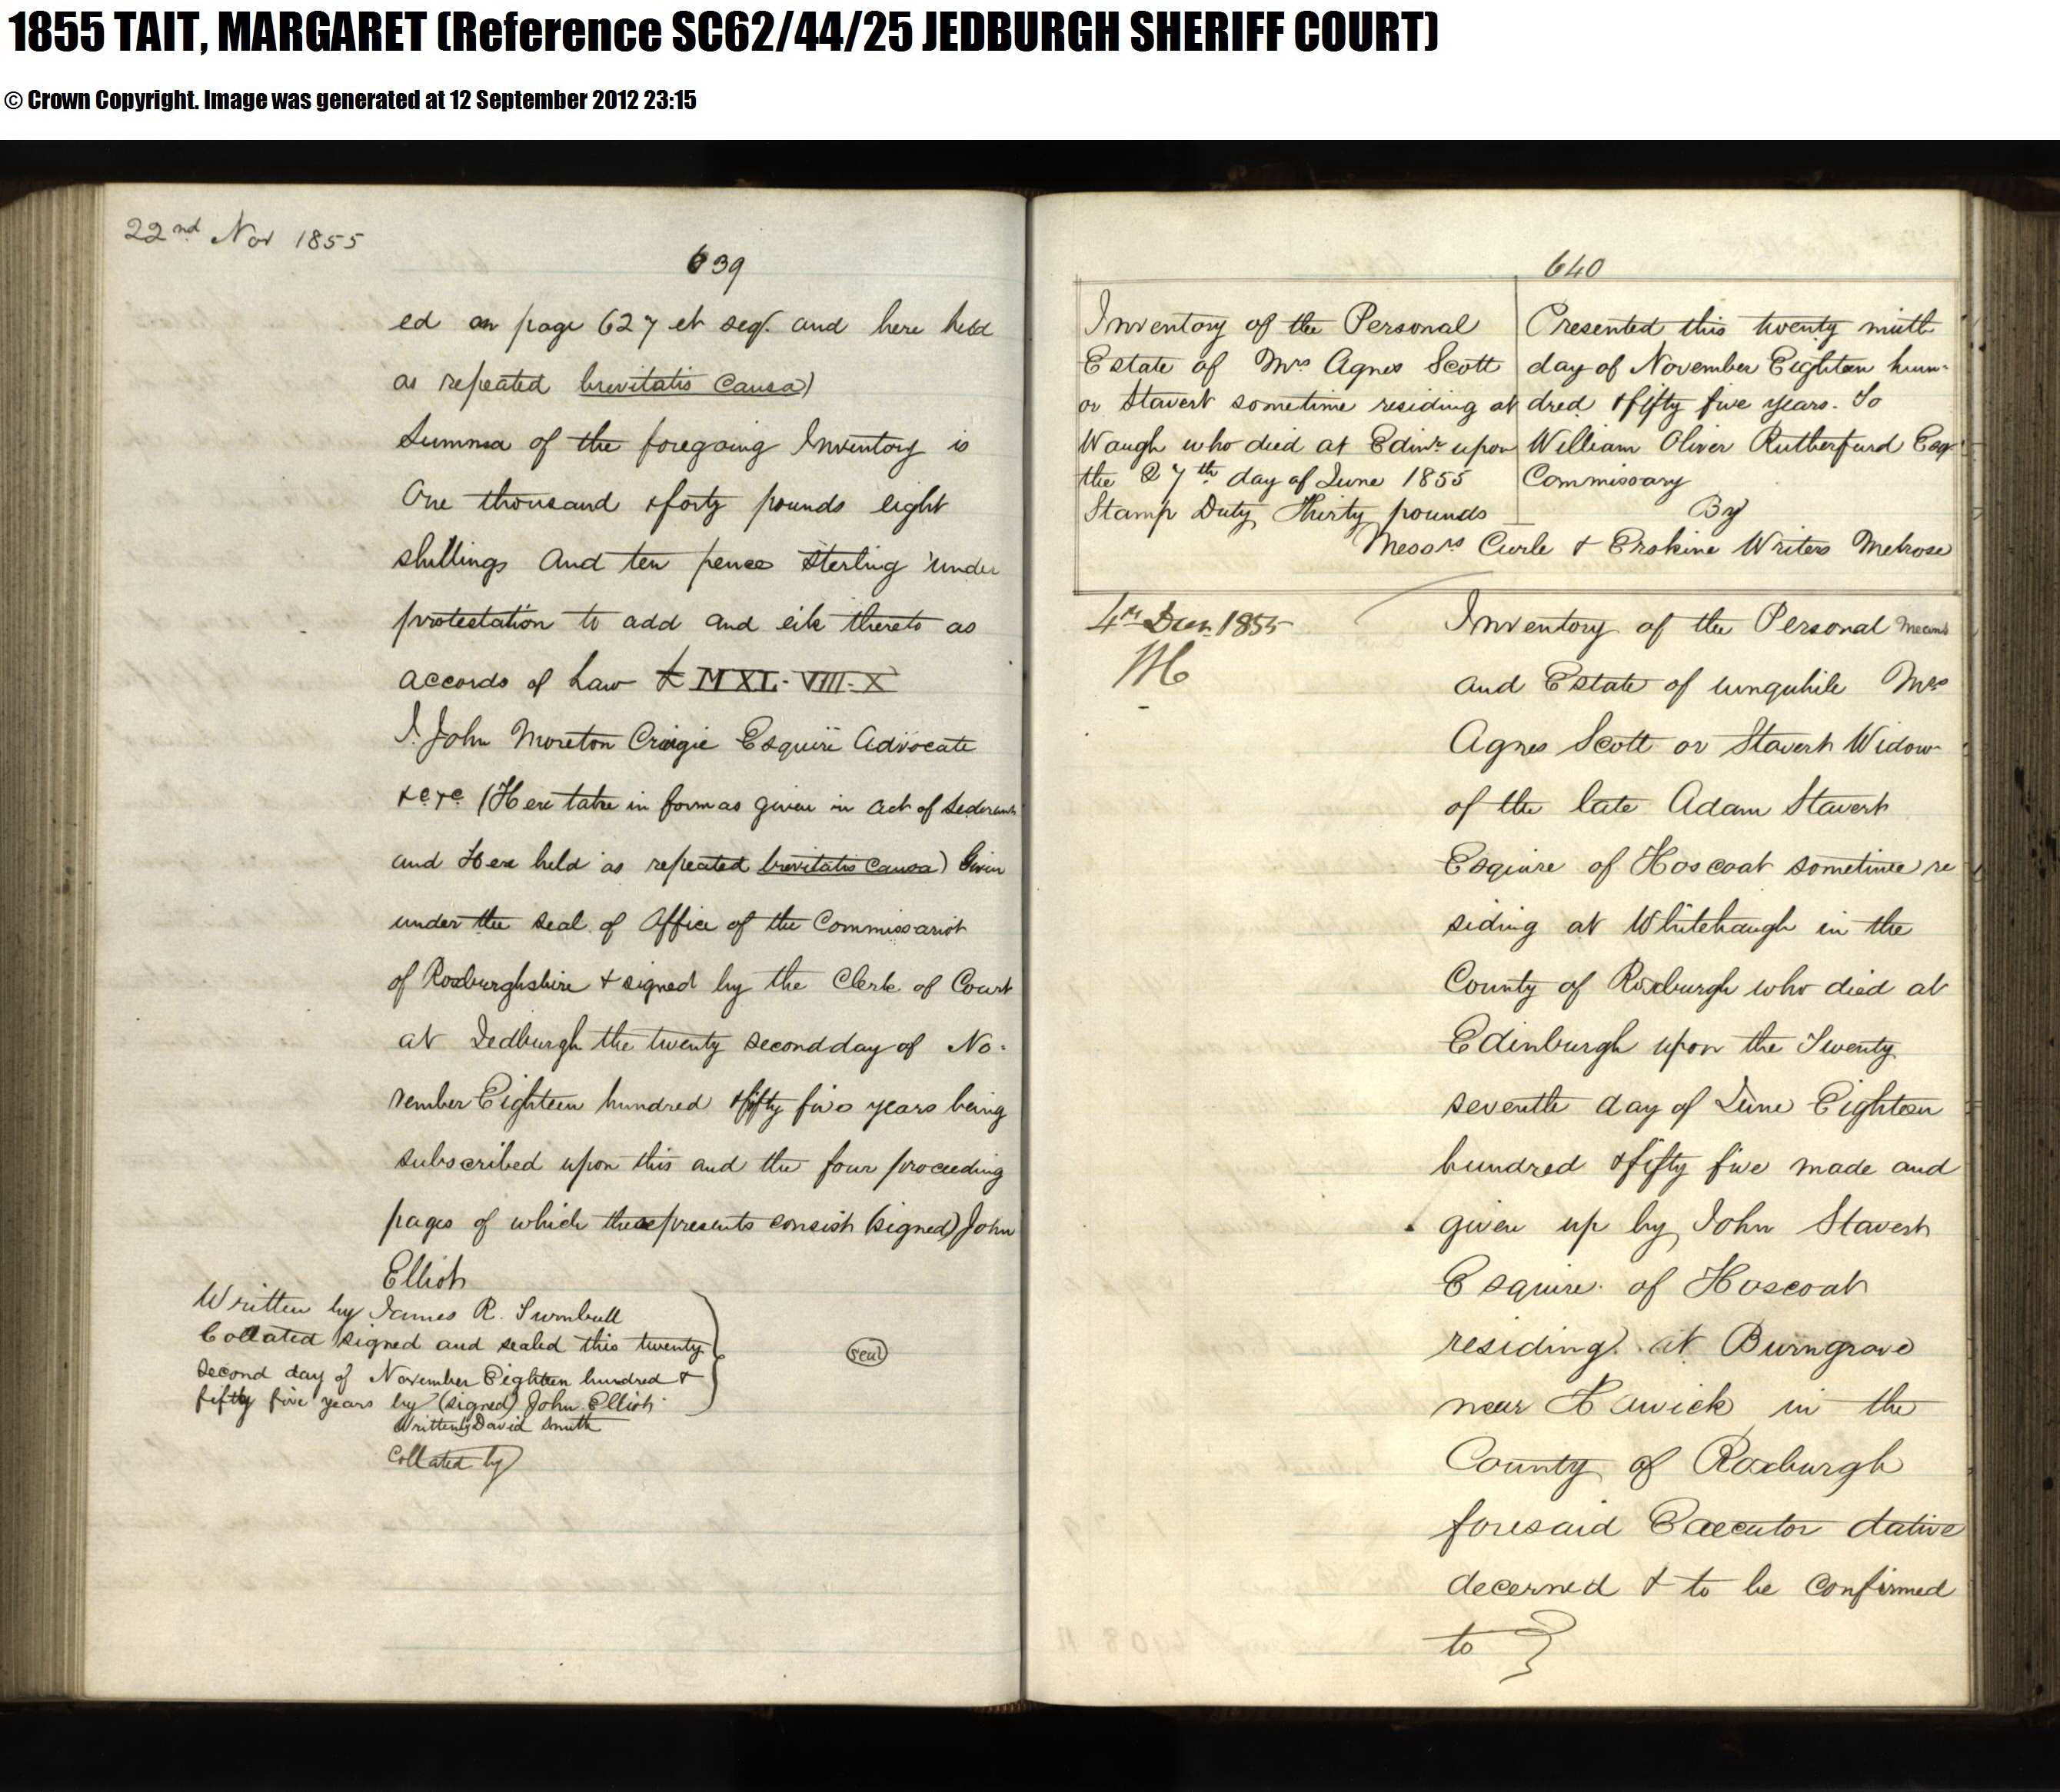 1855 TAIT, MARGARET (Reference SC62/44/25 JEDBURGH SHERIFF COURT)
© Crown Copyright. Image was generated at 12 September 2012 23:15
22nd Nov 1855
639
ed on page 627 et seq. and here held
as repeated brevitatis causa)
Summa of the foregoing Inventory is
One thousand & forty pounds eight
shillings And ten pence Sterling under
protestation to add and eik thereto as
accords of Law £ MXL. VIII. X
I. John Moreton Craigie Esquire Advocate
&c &c (Here take in form as given in act of Sederunt
and Here held as repeated brevitatis causa) Given
under the seal of Office of the Commissariot
of Roxburghshire & signed by the Clerk of Court
at Jedburgh the twenty second day of No-
vember Eighteen hundred & fifty five years being
subscribed upon this and the four preceeding
pages of which these presents consist (signed) John
Elliot
Written by James R. Turnbull
Collated signed and sealed this twenty
second day of November Eighteen hundred &
fifty five years by (signed) John Elliot
seal
Written by David Smith
Collated by
640
Inventory of the Personal
Estate of Mrs Agnes Scott
or Stavert sometime residing at
Waugh who died at Edinr upon
the 27th day of June 1855
Stamp Duty Thirty pounds
Presented this twenty ninth
day of November Eighteen hun-
dred & fifty five years. To
William Oliver Rutherfurd Esqr
Commissary
By
Messrs Curle & Erskine Writers Melrose
4th Decr. 1855
Inventory of the Personal Means
and Estate of umquhile Mrs
Agnes Scott or Stavert Widow
of the late Adam Stavert
Esquire of Hoscoat sometime re
siding at Whitehaugh in the
County of Roxburgh who died at
Edinburgh upon the Twenty
seventh day of June Eighteen
hundred & fifty five made and
given up by John Stavert
Esquire of Hoscoat
residing at Burngrove
near Hawick in the
County of Roxburgh
foresaid Executor dative
decerned & to be confirmed
to